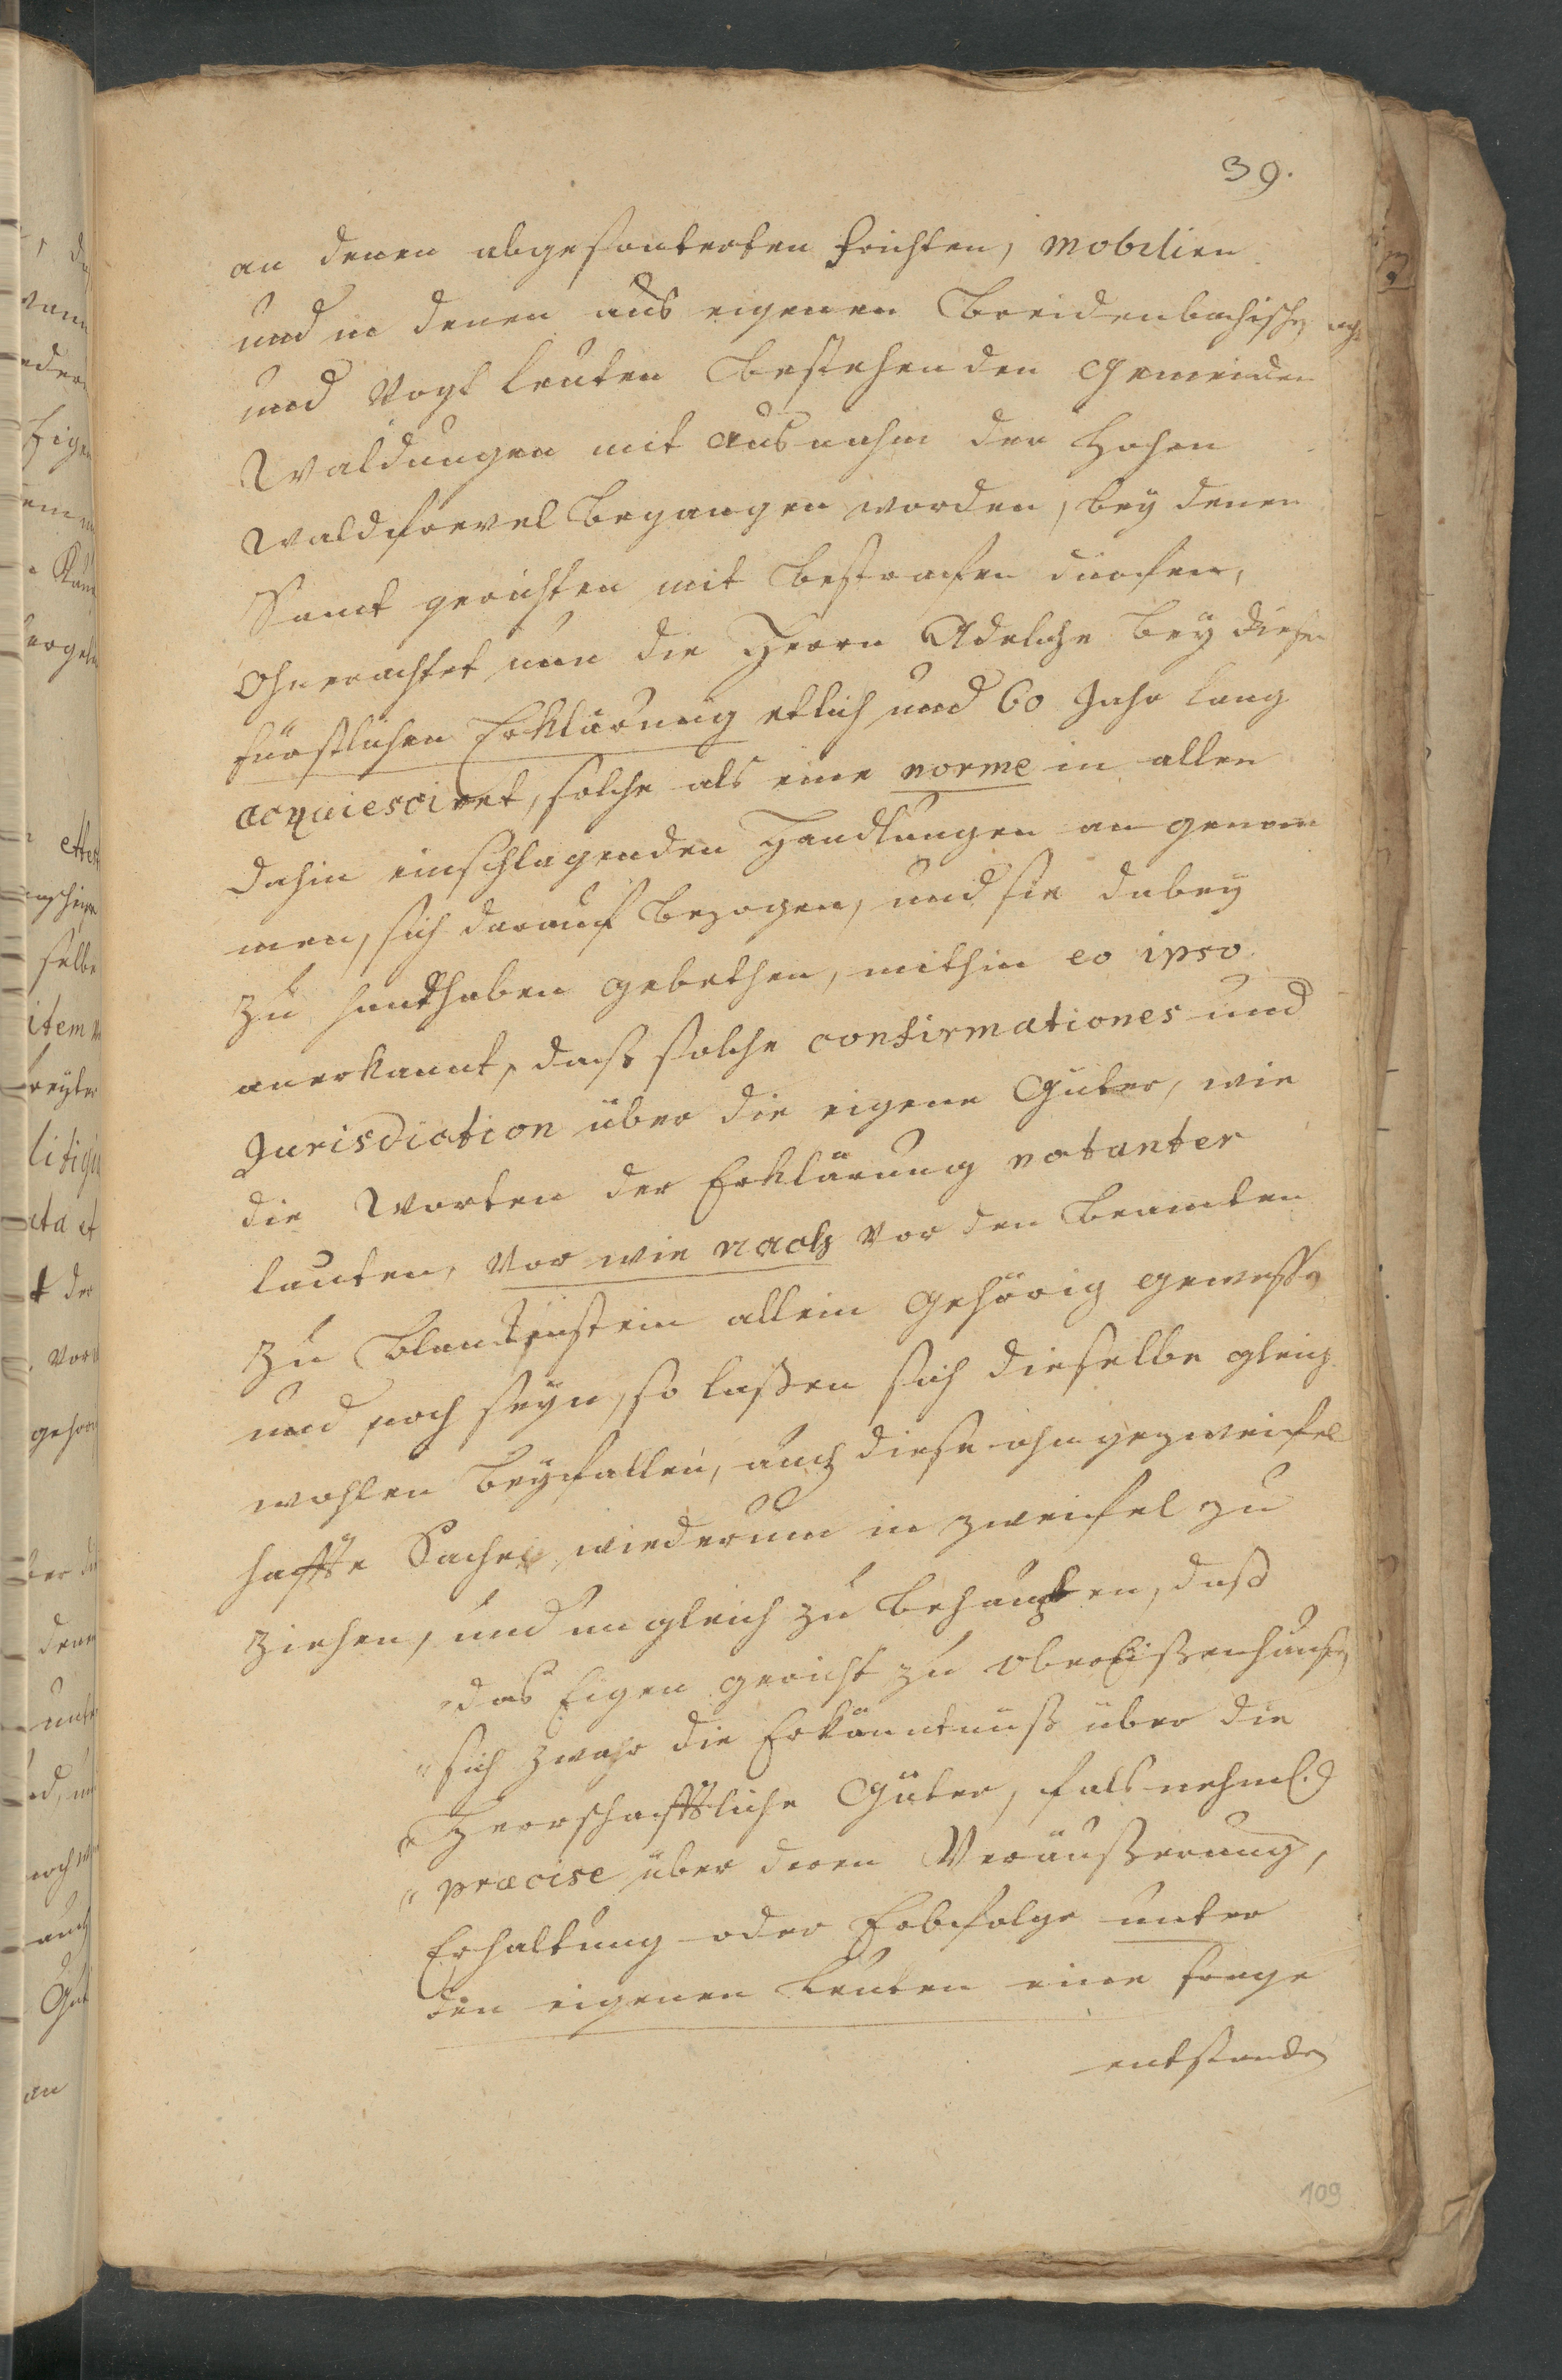 39.
an denen abgesonderten früchten, mobilien
und in denen aus eigenen Breidenbachischen
und Vogt leuten bestehenden Gemeinden
Waldungen mit Ausnahm der hohen
Waldfrevel begangen worden, bey denen
Samt gerichten mit bestrafen dürfen,
Ohnerachtet nun die Herrn Adeliche bey dieser
fürstlichen Erklärung etlich und 60 Jahr lang
acquiesciret, solche als eine norme in allen
dahin einschlagenden Handlungen an genom
men, sich darauf bezogen, und sie dabey
zu handhaben gebethen, mithin eo ipso
anerkannt, dass solche confirmationes und
Jurisdiction über die eigene Güter, wie
die Worten der Erklärung notanter
lauten, vor wie nach vor den Beamten
zu Blanckenstein allein gehörig gewesen
und noch seyn, so lassen sich dieselbe gleich
wohlen beyfallen, auch diese ohngezweifel
haffte Sache wiederum in zweifel zu
ziehen, und ungleich zu behaupten, dass
"das Eigen gericht zu oberEissenhausen
"sich zwahr die Erkänntnuss über die
"Herrschafftliche Güter, falls nehml.
"præcise über deren Veräusserung,
Erhaltung oder Erbfolge unter
den eigenen Leuten eine frage
entstanden
109